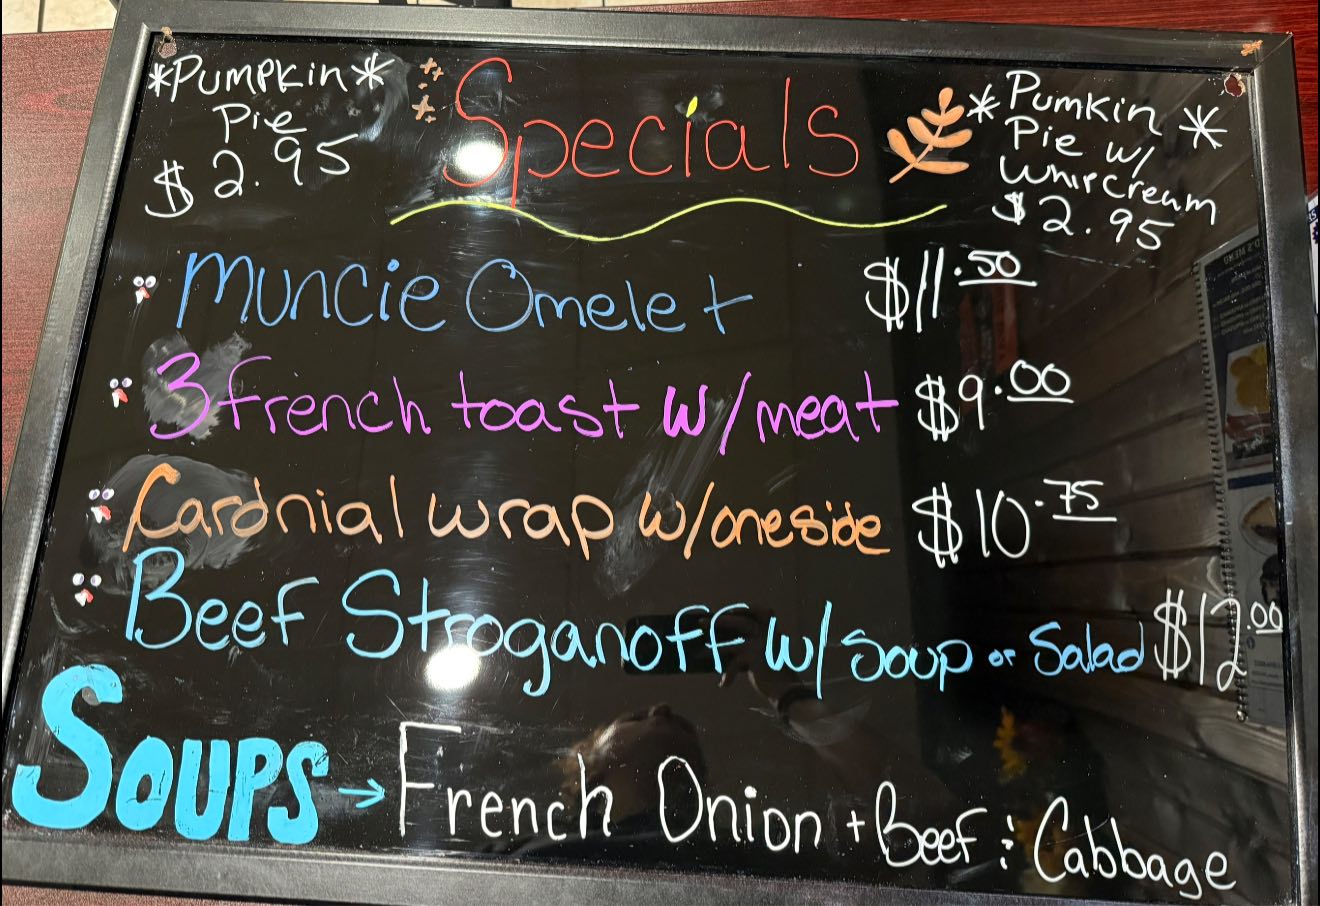 *Pumpkin*
Pie
$2.95
Specials
*Pumkin*
Pie w/
Whip cream
$2.95
Muncie Omelet $11.50
3 french toast w/meat $9.00
Cardnial wrap w/one side $10.75
Beef Stroganoff w/ Soup or Salad $12.00
SOUPS → French Onion + Beef : Cabbage